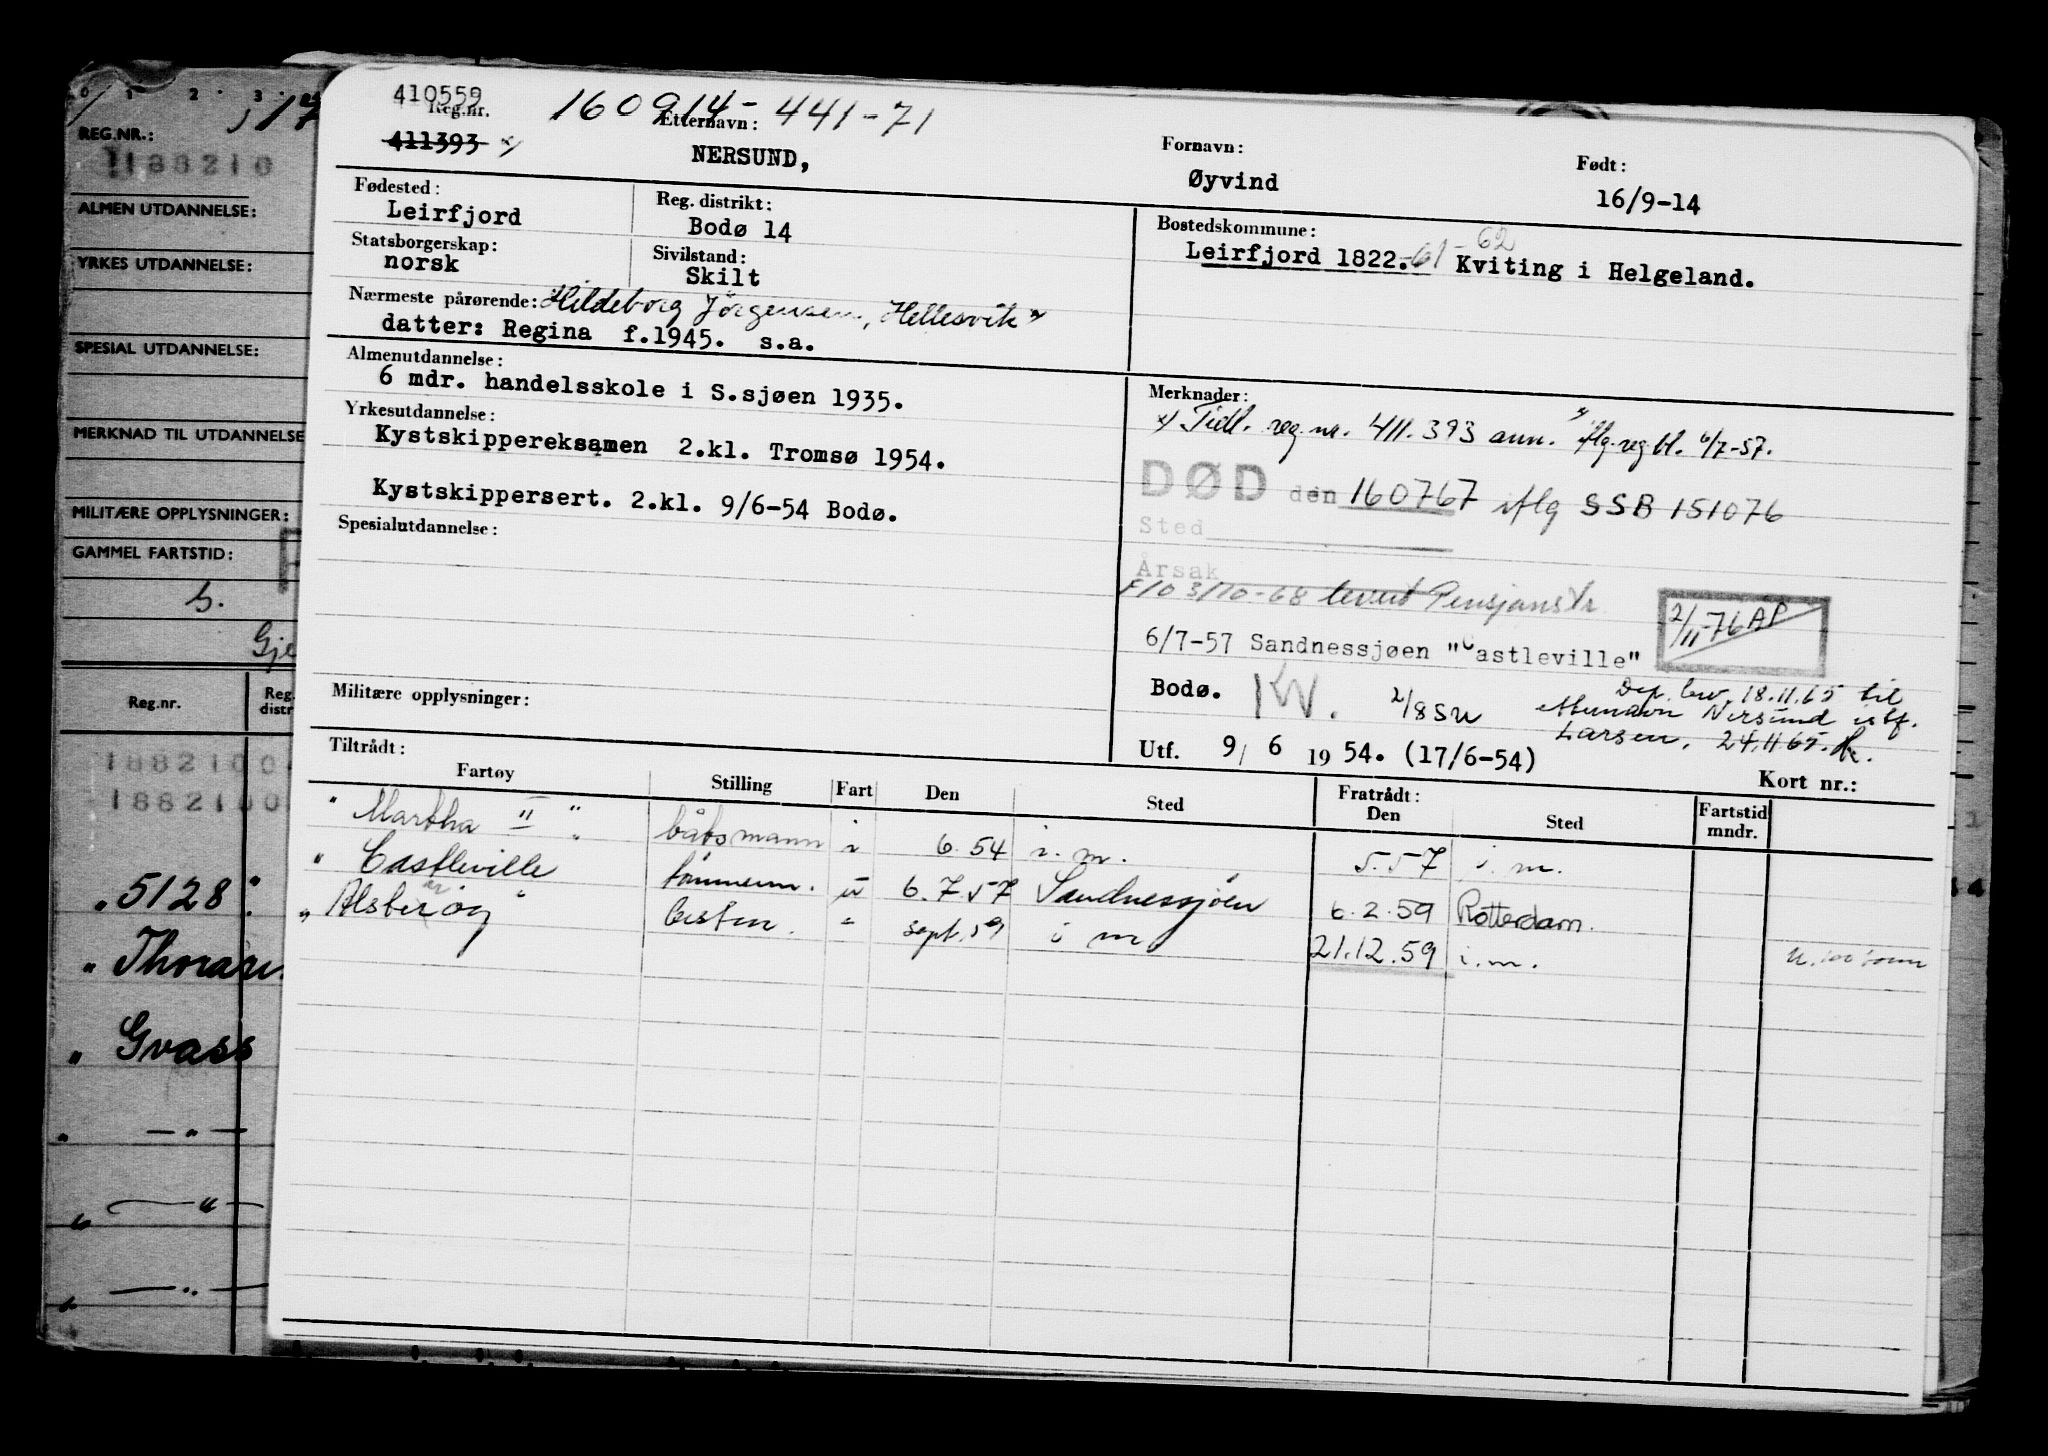 410559
Reg.nr.
160914-441-71
411393 x/
Etternavn:
NERSUND,
Fornavn:
Øyvind
Født:
16/9-14
Fødested:
Leirfjord
Reg. distrikt:
Bodø 14
Bostedskommune:
Leirfjord 1822.-61-62 Kviting i Helgeland.
Statsborgerskap:
norsk
Sivilstand:
Skilt
Nærmeste pårørende: Hildeborg Jørgensen, Hellesvik
datter: Regina f.1945. s.a.
Almenutdannelse:
6 mdr. handelsskole i S.sjøen 1935.
Yrkesutdannelse:
Kystskippereksamen 2.kl. Tromsø 1954.
Kystskippersert. 2.kl. 9/6-54 Bodø.
Spesialutdannelse:
Militære opplysninger:
Merknader:
x/ Tidl. reg.nr. 411.393 ann. iflg. reg.bl. 6/7-57.
DØD den 160767 iflg SSB 151076
Sted
Årsak
F10 3/10-68 levert Pensjonstr
2/11-76 AP
6/7-57 Sandnessjøen "Castleville"
Bodø.
2/8 SN
Dep. brev. 18.11.65 til
Nersund istf.
Larsen. 24.11.65.
Utf. 9/ 6 1954. (17/6-54)
Kort nr.:
Tiltrådt:
Fartøy Stilling Fart Den Sted Fratrådt: Den Sted Fartstid mndr.
"Martha II" båtsmann i 6.54 i.m. 5.57 i.m.
" Castleville tømmerm. u 6.7.57 Sandnessjøen 6.2.59 Rotterdam.
" bestm. " sept. 59 i m 21.12.59 i.m.
0 1 2 3
REG.NR.:
1188210
ALMEN UTDANNELSE:
YRKES UTDANNELSE:
SPESIAL UTDANNELSE:
MERKNAD TIL UTDANNELSE
MILITÆRE OPPLYSNINGER:
GAMMEL FARTSTID:
Gje
Reg.nr. Reg. distr
1882100
1882100
"5128"
" Gvass